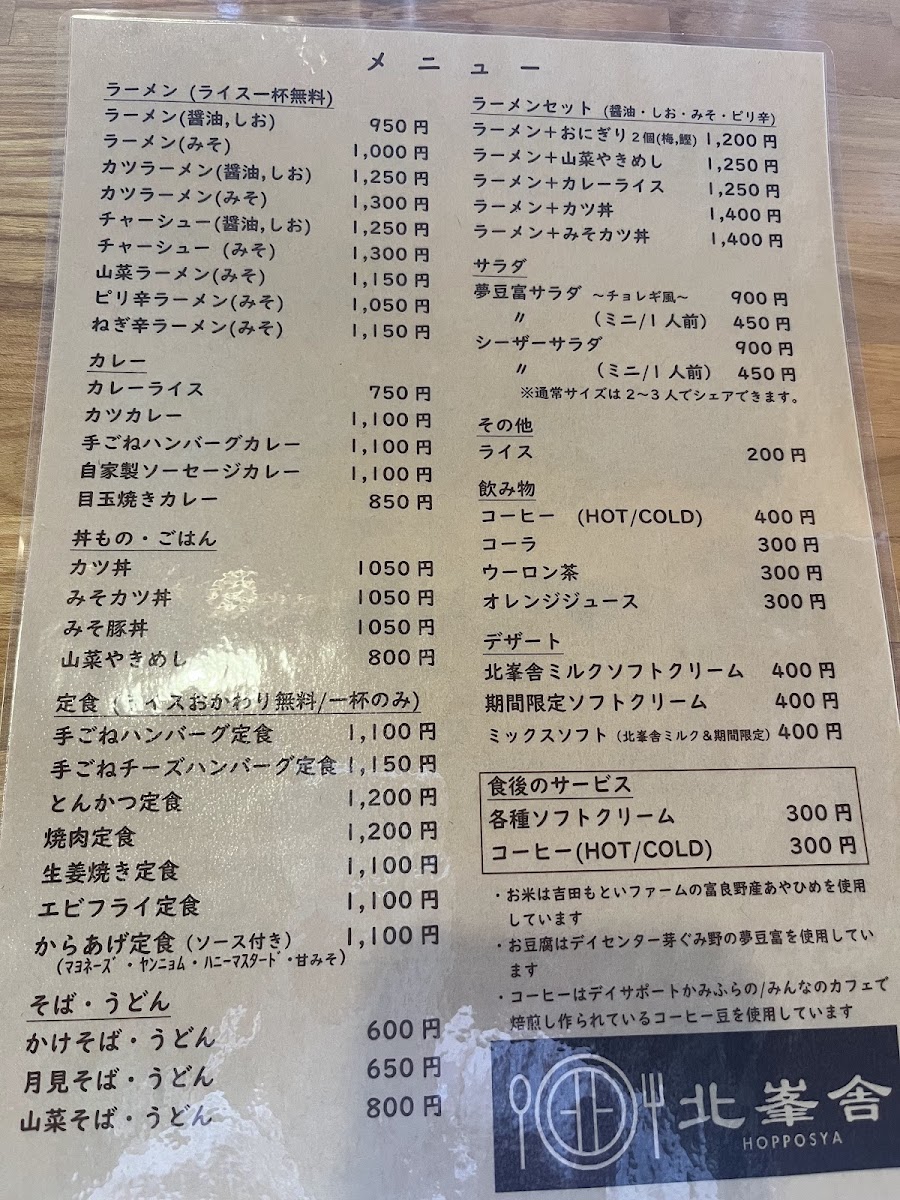 メニュー
ラーメン (ライス一杯無料)
ラーメン(醤油,しお) 950円
ラーメン(みそ) 1,000円
カツラーメン(醤油,しお) 1,250円
カツラーメン(みそ) 1,300円
チャーシュー(醤油,しお) 1,250円
チャーシュー (みそ) 1,300円
山菜ラーメン(みそ) 1,150円
ピリ辛ラーメン(みそ) 1,050円
ねぎ辛ラーメン(みそ) 1,150円
カレー
カレーライス 750円
カツカレー 1,100円
手ごねハンバーグカレー 1,100円
自家製ソーセージカレー 1,100円
目玉焼きカレー 850円
丼もの・ごはん
カツ丼 1050円
みそカツ丼 1050円
みそ豚丼 1050円
山菜やきめし 800円
定食 (ライスおかわり無料/一杯のみ)
手ごねハンバーグ定食 1,100円
手ごねチーズハンバーグ定食 1,150円
とんかつ定食 1,200円
焼肉定食 1,200円
生姜焼き定食 1,100円
エビフライ定食 1,100円
からあげ定食 (ソース付き) 1,100円
(マヨネーズ・ヤンニョム・ハニーマスタード・甘みそ)
そば・うどん
かけそば・うどん 600円
月見そば・うどん 650円
山菜そば・うどん 800円
ラーメンセット (醤油・しお・みそ・ピリ辛)
ラーメン+おにぎり2個(梅,鰹) 1,200円
ラーメン+山菜やきめし 1,250円
ラーメン+カレーライス 1,250円
ラーメン+カツ丼 1,400円
ラーメン+みそカツ丼 1,400円
サラダ
夢豆富サラダ ~チョレギ風~ 900円
〃 (ミニ/1人前) 450円
シーザーサラダ 900円
〃 (ミニ/1人前) 450円
※通常サイズは2~3人でシェアできます。
その他
ライス 200円
飲み物
コーヒー (HOT/COLD) 400円
コーラ 300円
ウーロン茶 300円
オレンジジュース 300円
デザート
北峯舎ミルクソフトクリーム 400円
期間限定ソフトクリーム 400円
ミックスソフト (北峯舎ミルク&期間限定) 400円
食後のサービス
各種ソフトクリーム 300円
コーヒー(HOT/COLD) 300円
・お米は吉田もといファームの富良野産あやひめを使用
しています
・お豆腐はデイセンター芽ぐみ野の夢豆富を使用してい
ます
・コーヒーはデイサポートかみふらの/みんなのカフェで
焙煎し作られているコーヒー豆を使用しています
北峯舎
HOPPOSYA